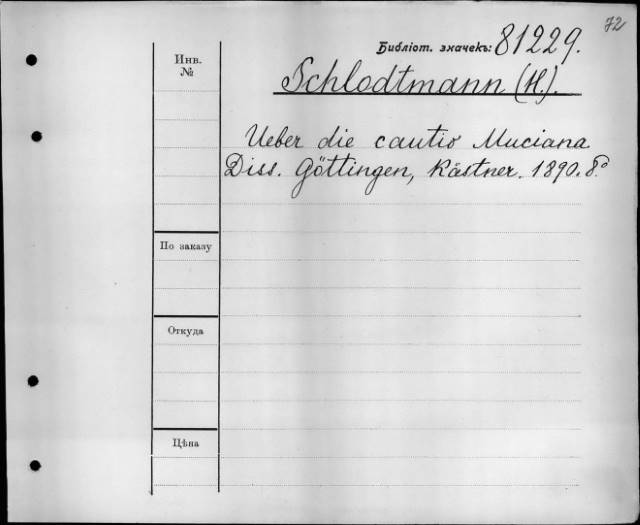 72
Библіот. значекъ: 81229.
Инв.
№
Schlodtmann (H.).
Ueber die cautio Muciana
Diss. Göttingen, Kästner. 1890. 8.°
По заказу
Откуда
Цѣна